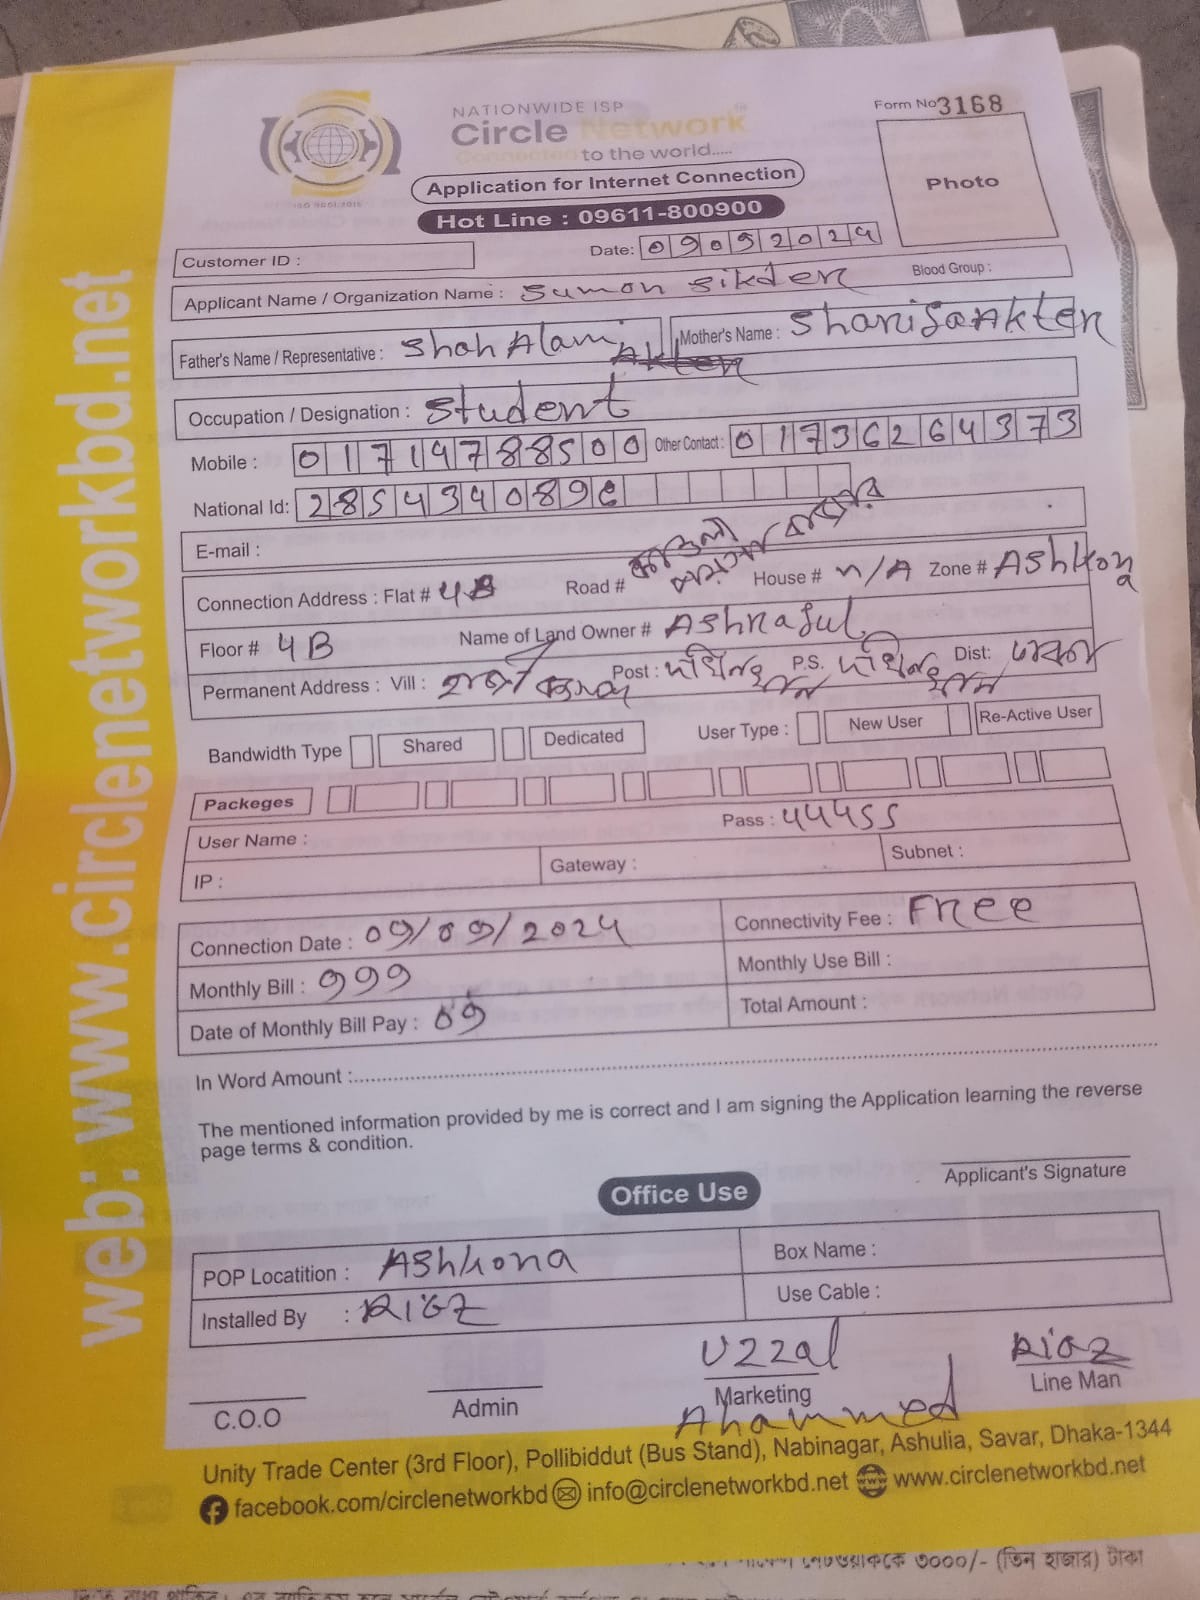 NATIONWIDE ISP
Circle Network
Connected to the world.....
Form No 3168
Application for Internet Connection
Photo
Hot Line : 09611-800900
ISO 9001:2015
Date: 09092024
Customer ID :
Applicant Name / Organization Name : Sumon Sikder
Blood Group :
Father's Name / Representative : Shah Alam
Mother's Name : Sharifa Akter
Occupation / Designation : Student
Mobile : 01719788500 Other Contact : 01736264373
National Id:
E-mail :
Connection Address : Flat # 4B Road # House # n/A Zone # Ashkona
Floor # 4B Name of Land Owner # Ashraful
Permanent Address : Vill : Post : P.S. Dist:
Bandwidth Type Shared Dedicated User Type : New User Re-Active User
Packeges
User Name : Pass : 44455
IP : Gateway : Subnet :
Connection Date : 09/09/2024 Connectivity Fee : Free
Monthly Bill : 999 Monthly Use Bill :
Date of Monthly Bill Pay : 09 Total Amount :
In Word Amount :
The mentioned information provided by me is correct and I am signing the Application learning the reverse
page terms & condition.
Applicant's Signature
Office Use
POP Locatition : Ashkona Box Name :
Installed By : Riaz Use Cable :
C.O.O
Admin
Uzzal
Marketing
Ahammed
Riaz
Line Man
Unity Trade Center (3rd Floor), Pollibiddut (Bus Stand), Nabinagar, Ashulia, Savar, Dhaka-1344
facebook.com/circlenetworkbd info@circlenetworkbd.net www.circlenetworkbd.net
web: www.circlenetworkbd.net
৩০০০/- (তিন হাজার) টাকা